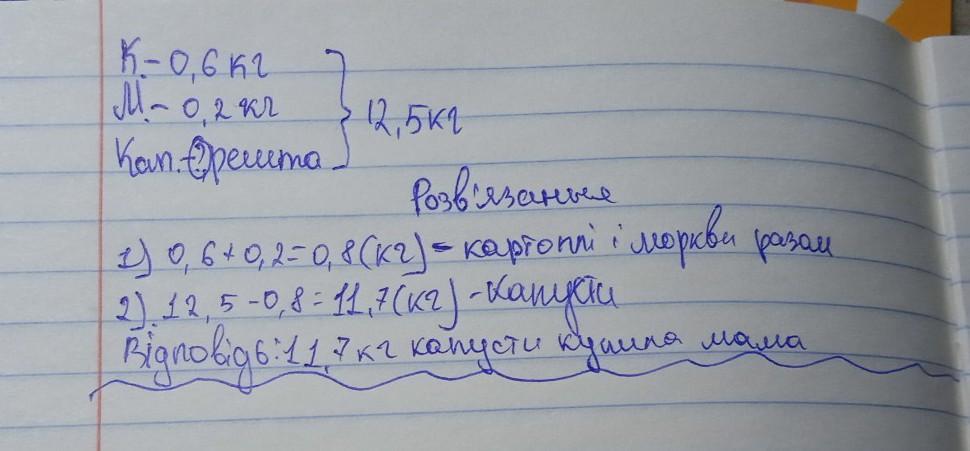 К. - 0,6 кг
М. - 0,2 кг
Кап. - ? решта
12,5 кг
Розв'язання
1) 0,6 + 0,2 = 0,8 (кг) - картоплі і моркви разом
2) 12,5 - 0,8 = 11,7 (кг) - капусти
Відповідь: 11,7 кг капусти купила мама